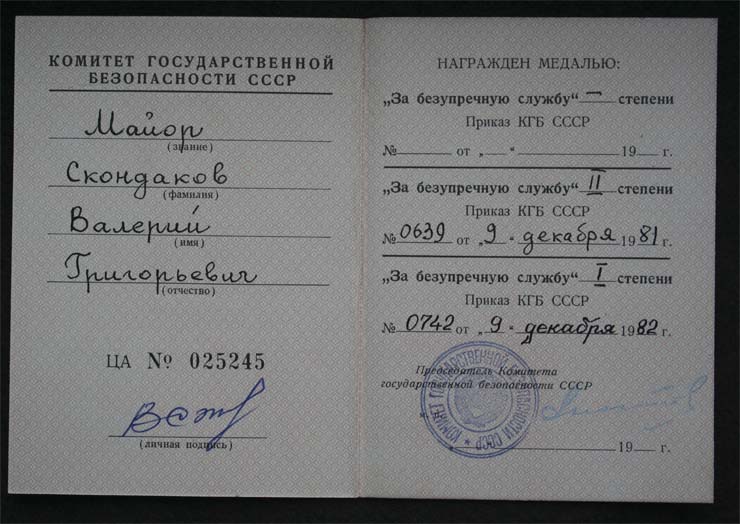 КОМИТЕТ ГОСУДАРСТВЕННОЙ
БЕЗОПАСНОСТИ СССР
Майор
(звание)
Скондаков
(фамилия)
Валерий
(имя)
Григорьевич
(отчество)
ЦА № 025245
(личная подпись)
НАГРАЖДЕН МЕДАЛЬЮ:
„За безупречную службу“ — степени
Приказ КГБ СССР
№ — от „ — “ — 19 — г.
„За безупречную службу“ II степени
Приказ КГБ СССР
№ 0639 от „ 9 “ декабря 1981 г.
„За безупречную службу“ I степени
Приказ КГБ СССР
№ 0742 от „ 9 “ декабря 1982 г.
Председатель Комитета
государственной безопасности СССР
КОМИТЕТ ГОСУДАРСТВЕННОЙ БЕЗОПАСНОСТИ СССР
19 — г.